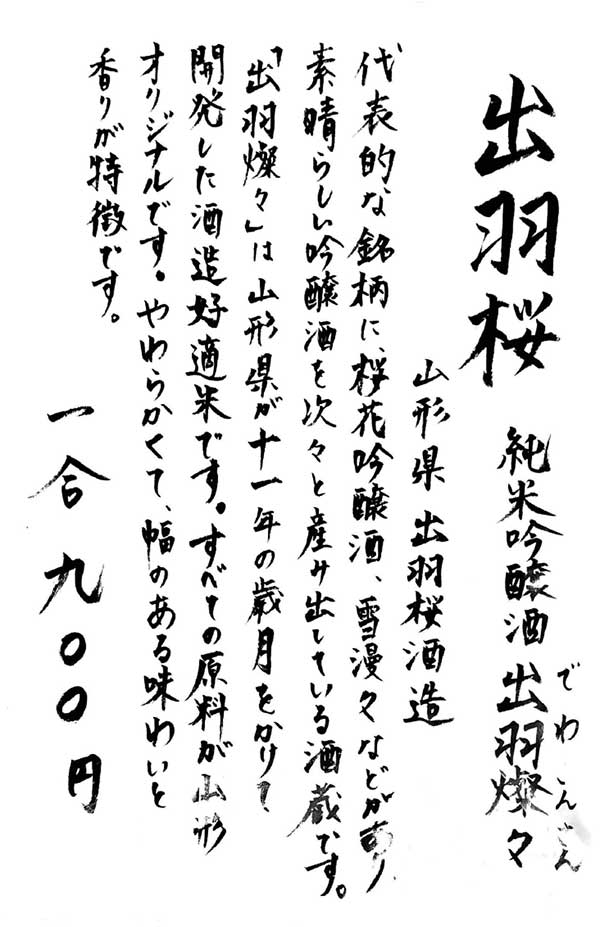 出羽桜
純米吟醸酒 出羽燦々
でわさんさん
山形県 出羽桜酒造
代表的な銘柄に、桜花吟醸酒、雪漫々などがあり
素晴らしい吟醸酒を次々と産み出している酒蔵です。
「出羽燦々」は山形県が十一年の歳月をかけて
開発した酒造好適米です。すべての原料が山形
オリジナルです。やわらかくて、幅のある味わいと
香りが特徴です。
一合 九〇〇円